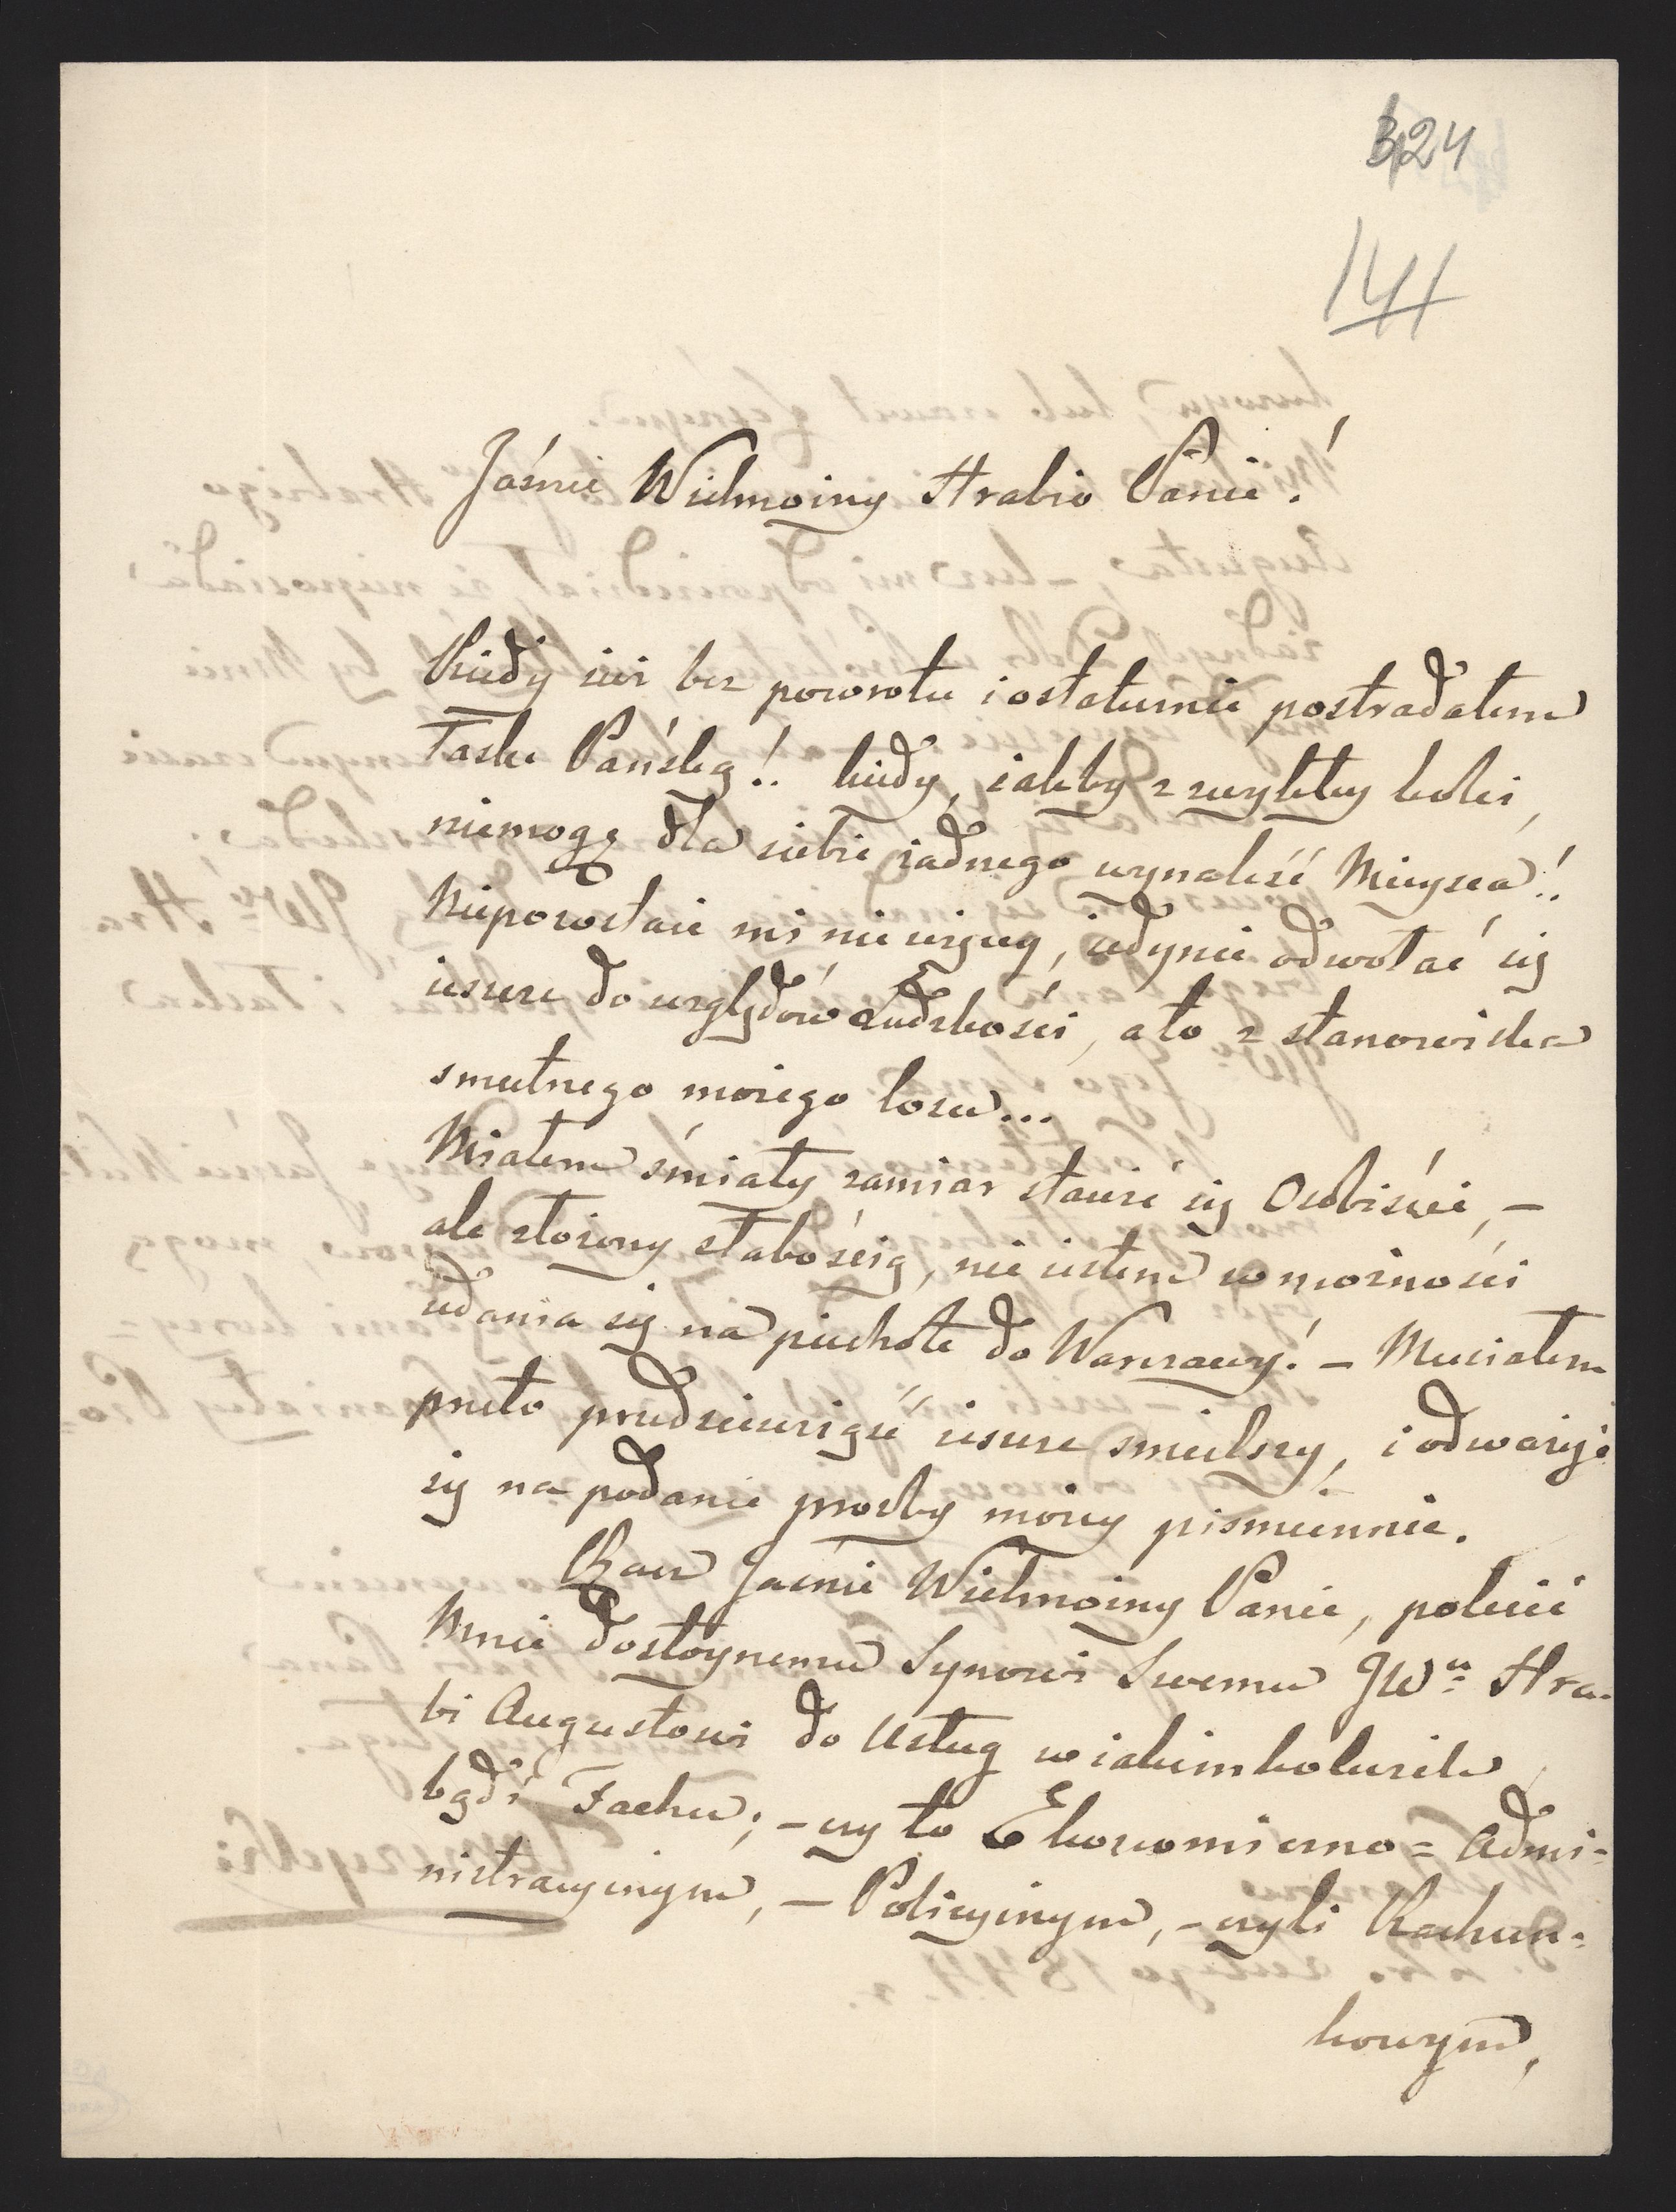 324
141
Jaśnie Wielmożny Hrabio Panie!
Kiedy iuż bez powrotu i ostatecznie postradałem
Łaskę Pańską!! kiedy, iakby z zwykłey kolei,
niemogę dla siebie żadnego wynaleść Mieysca!!
Niepozostaie mi nic więcey, iedynie odwołać się
ieszcze do względów Ludzkości, a to z stanowiska
smutnego moiego losu...
Miałem śmiały zamiar stawić się Osobiście, –
ale złożony słabością, nie iestem w możności
udania się na piechotę do Warszawy! – Musiałem
przeto przedsięwziąć ieszcze śmielszy, i odważyć
się na podanie prośby moiey piśmiennie.
Racz Jaśnie Wielmożny Panie, polecić
Mnie dostoynemu Synowi Swemu JWu Hra-
bi Augustowi do Usług w iakimkolwiek
bądź Fachu; – czy to Ekonomiczno = Admi-
nistracyinym, – Policyinym, – czyli Rachun-
kowym,